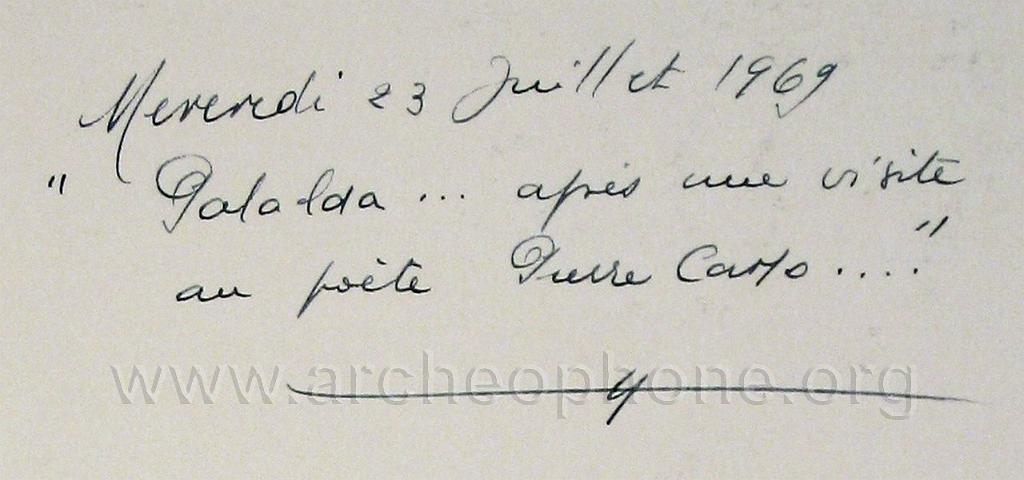 Mercredi 23 Juillet 1969
" Palalda ... après une visite
au poète Pierre Camo .... "
www.archeophone.org